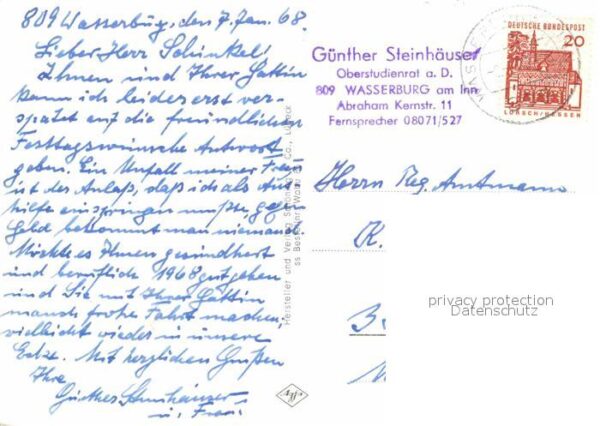 809 Wasserburg, den 7. Jan. 68.
Lieber Herr Schinkel!
Ihnen und Ihrer Gattin
kann ich leider erst ver-
spätet auf die freundlichen
Festtagswünsche Antwort
geben. Ein Unfall meiner Frau
ist der Anlaß, daß ich als Aus-
hilfe einspringen mußte, gegen
Geld bekommt man niemand.
Möchte es Ihnen gesundheitl.
und beruflich 1968 gut gehen
und Sie mit Ihrer Gattin
manch frohe Fahrt machen,
vielleicht wieder in unsere
Ecke. Mit herzlichen Grüßen
Ihre
Günther Steinhäuser
u. Frau
Günther Steinhäuser
Oberstudienrat a. D.
809 WASSERBURG am Inn
Abraham Kernstr. 11
Fernsprecher 08071/527
DEUTSCHE BUNDESPOST
20
LORSCH/HESSEN
Herrn Reg. Amtmann
K.
B
privacy protection
Datenschutz
Hersteller und Verlag Schöning & Co., Lübeck